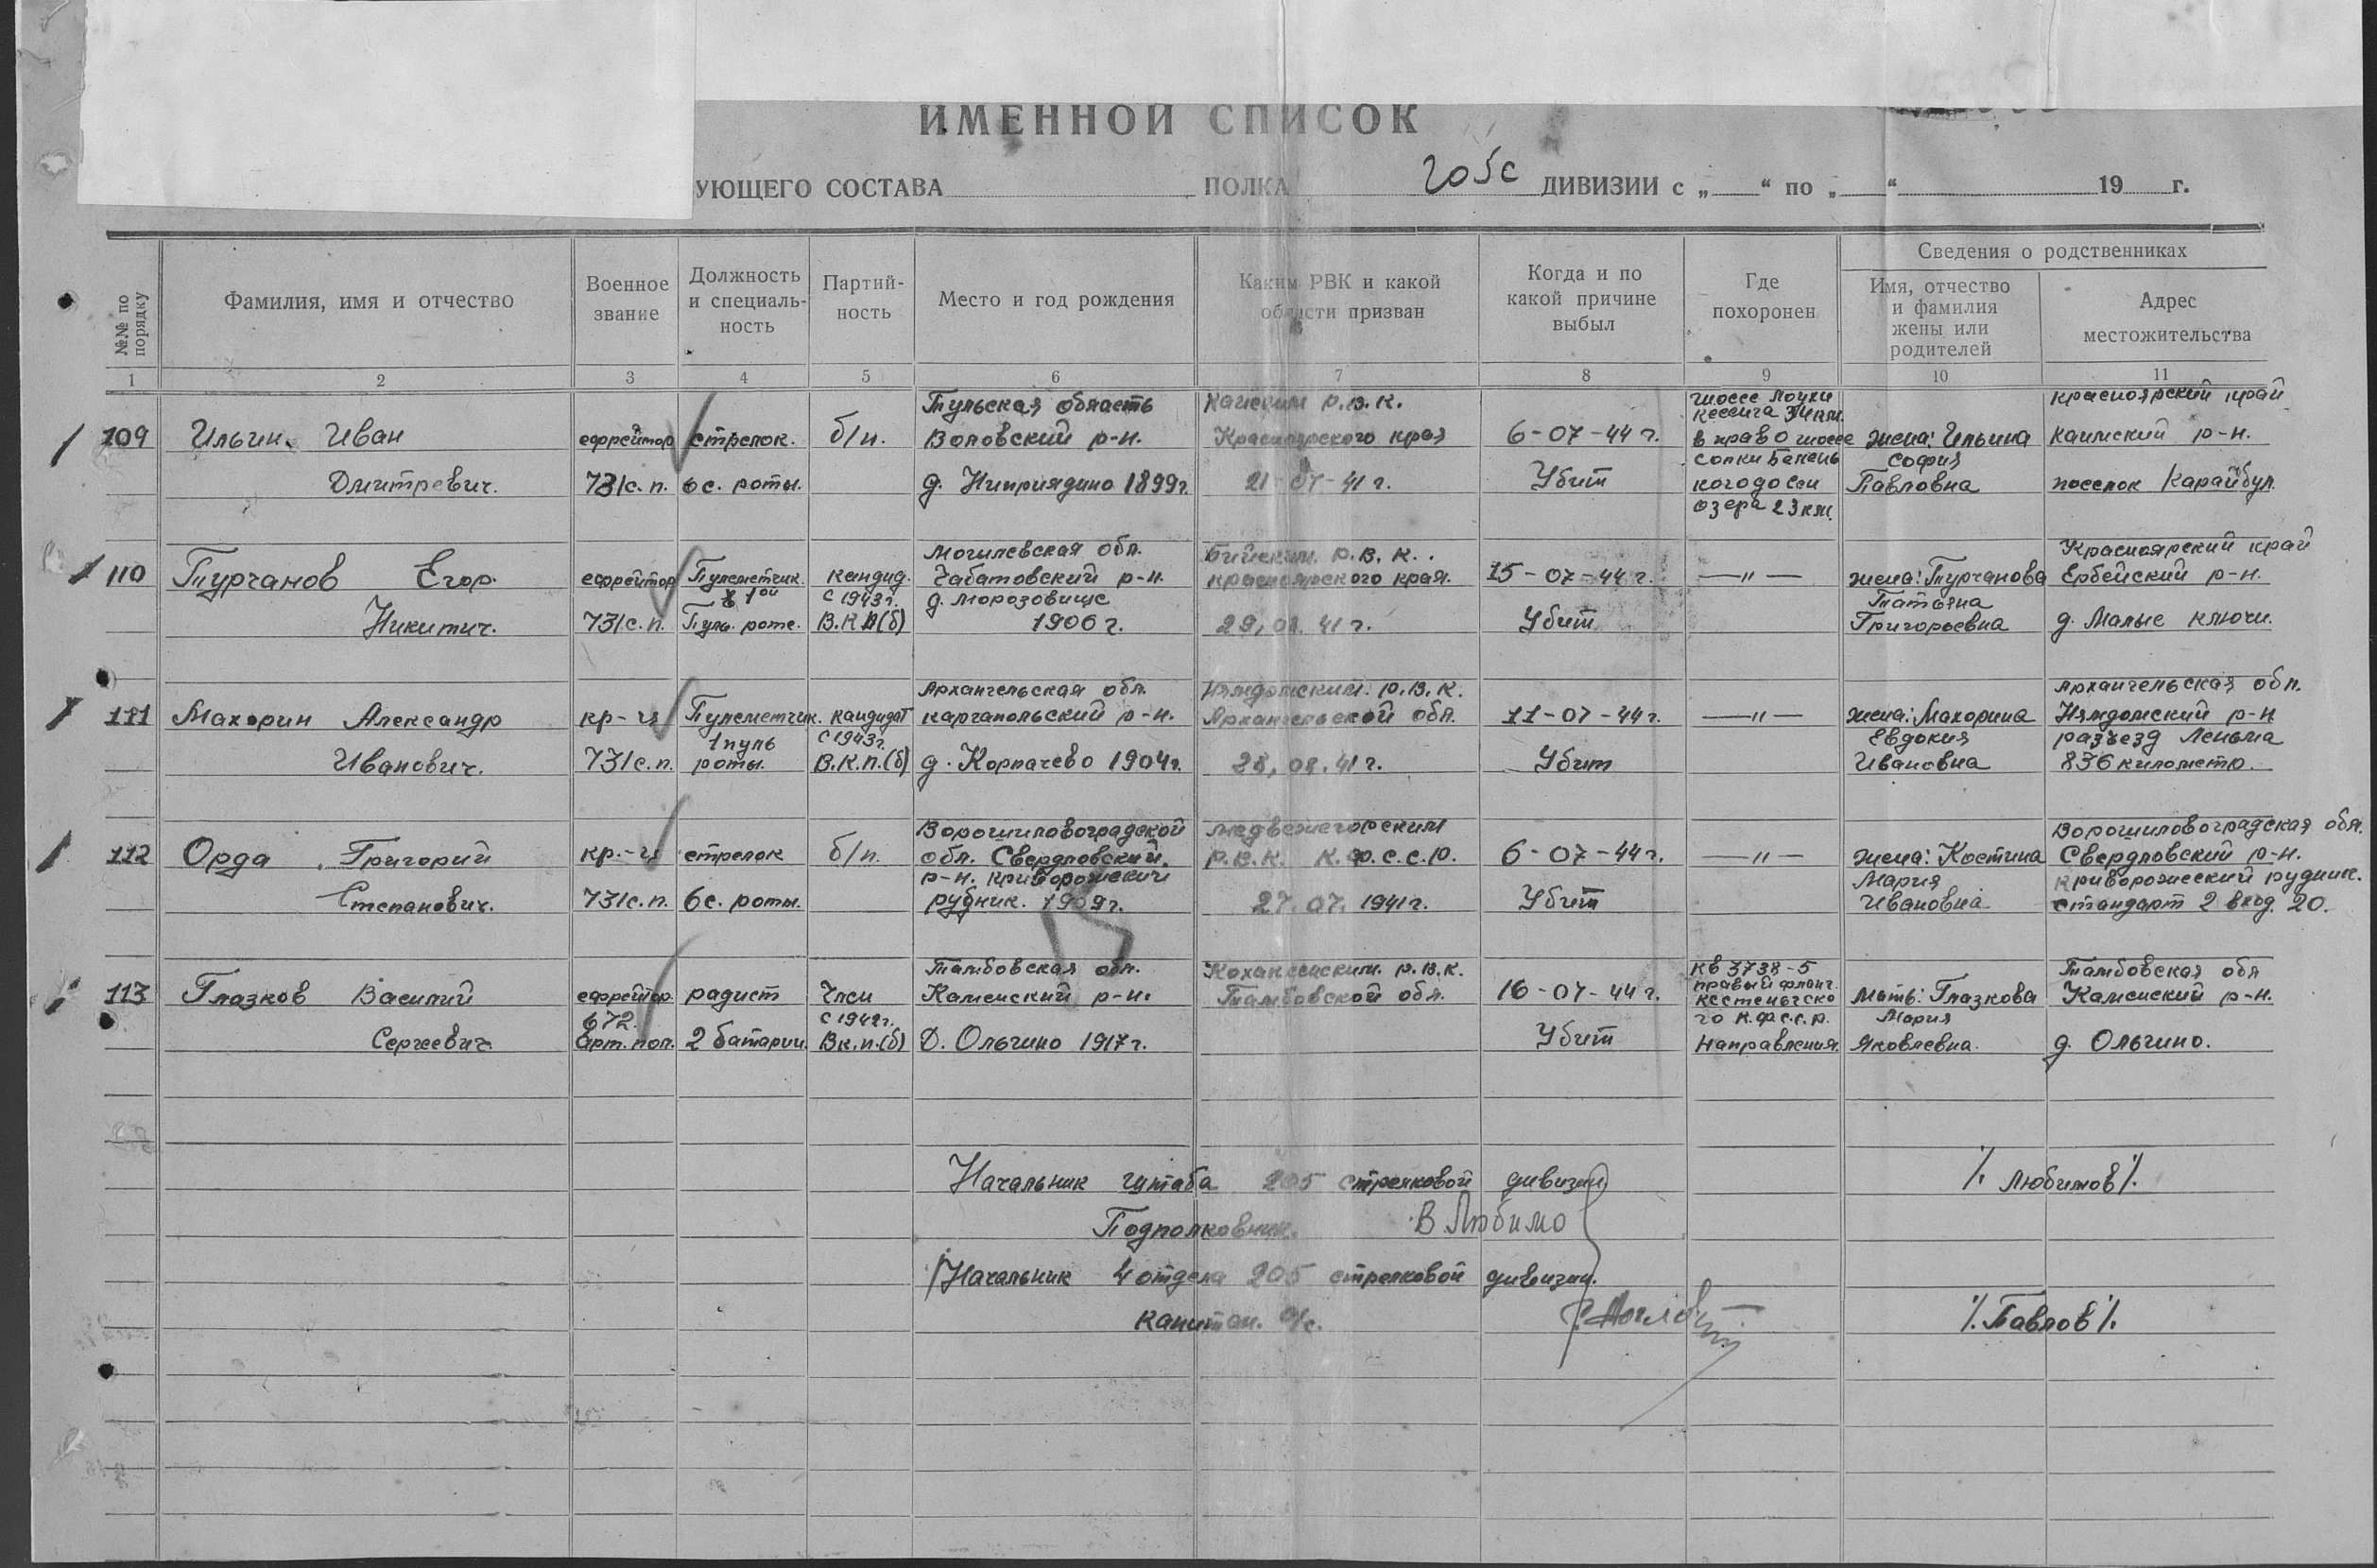 ИМЕННОЙ СПИСОК
УЮЩЕГО СОСТАВА ПОЛКА 205 с ДИВИЗИИ с „ “ по „ “ 19 г.
№№ по порядку
Фамилия, имя и отчество
Военное звание
Должность и специаль- ность
Партий- ность
Место и год рождения
Каким РВК и какой области призван
Когда и по какой причине выбыл
Где похоронен
Сведения о родственниках
Имя, отчество и фамилия жены или родителей
Адрес местожительства
1 2 3 4 5 6 7 8 9 10 11
Тульская область р.в.к. шоссе Лоухи красноярский край
кестига 34 км.
109 Ильин. Иван ефрейтор стрелок. б/п. Воловский р-н. Красноярского края 6-07-44 г. в право шоссе жена: Ильина р-н.
сопки София
Дмитревич. 731с.п. 6 с. роты. д. Ниприядино 1899г. 21-07-41 г. Убит Павловна поселок Карайбул.
озера 23 км.
Могилевская обл. р.в.к. Красноярский край
110 Турчанов Егор. ефрейтор Пулеметчик. кандид. Чабатовский р-н. красноярского края. 15-07-44 г. —"— жена: Турчанова Ербейский р-н.
1ой с 1943г. д. Морозовище Татьяна
Никитич. 731с.п. Пуль. роте. В.К.П(б) 1906 г. 29,08.41 г. Убит Григорьевна д. Малые ключи.
Архангельская обл. Няндомским. р.в.к. Архангельская обл.
111 Махорин Александр кр-ц Пулеметчик. кандидат каргапольский р-н. Архангельской обл. 11-07-44 г. —"— жена: Махорина Няндомский р-н
1 пуль с 1943г. Евдокия разъезд Леньма
Иванович. 731с.п. роты. В.К.П.(б) д. Корпачево 1904г. 28,08.41 г. Убит Ивановна 836 километр.
Ворошиловоградской медвежегорским Ворошиловоградская обл.
112 Орда Григорий кр.-ц стрелок б/п. обл. Свердловский. р.в.к. К.Ф.С.С.Р. 6-07-44 г. —"— жена: Костина Свердловский р-н.
р-н. криворожский Мария криворожский рудник.
Степанович. 731с.п. 6 с. роты. рудник. 1909г. 27.07.1941г. Убит Ивановна стандарт 2 вход. 20.
Тамбовская обл. р.в.к. кв 3738-5 Тамбовская обл
правый фланг.
113 Глазков Василий ефрейтор радист Член Каменский р-н. Тамбовской обл. 16-07-44 г. кестеньгско Мать: Глазкова Каменский р-н.
672. с 1942г. го К.Ф.С.С.Р. Мария
Сергеевич. Арт. пол. 2 батареи. В.к.п.(б) Д. Ольгино 1917 г. Убит Направления. Яковлевна. д. Ольгино.
Начальник штаба 205 стрелковой дивизии /. Любимов /.
Подполковник. В Любимо
/Начальник 4 отдела 205 стрелковой дивизии.
Капитан. а/с. /. Павлов /.